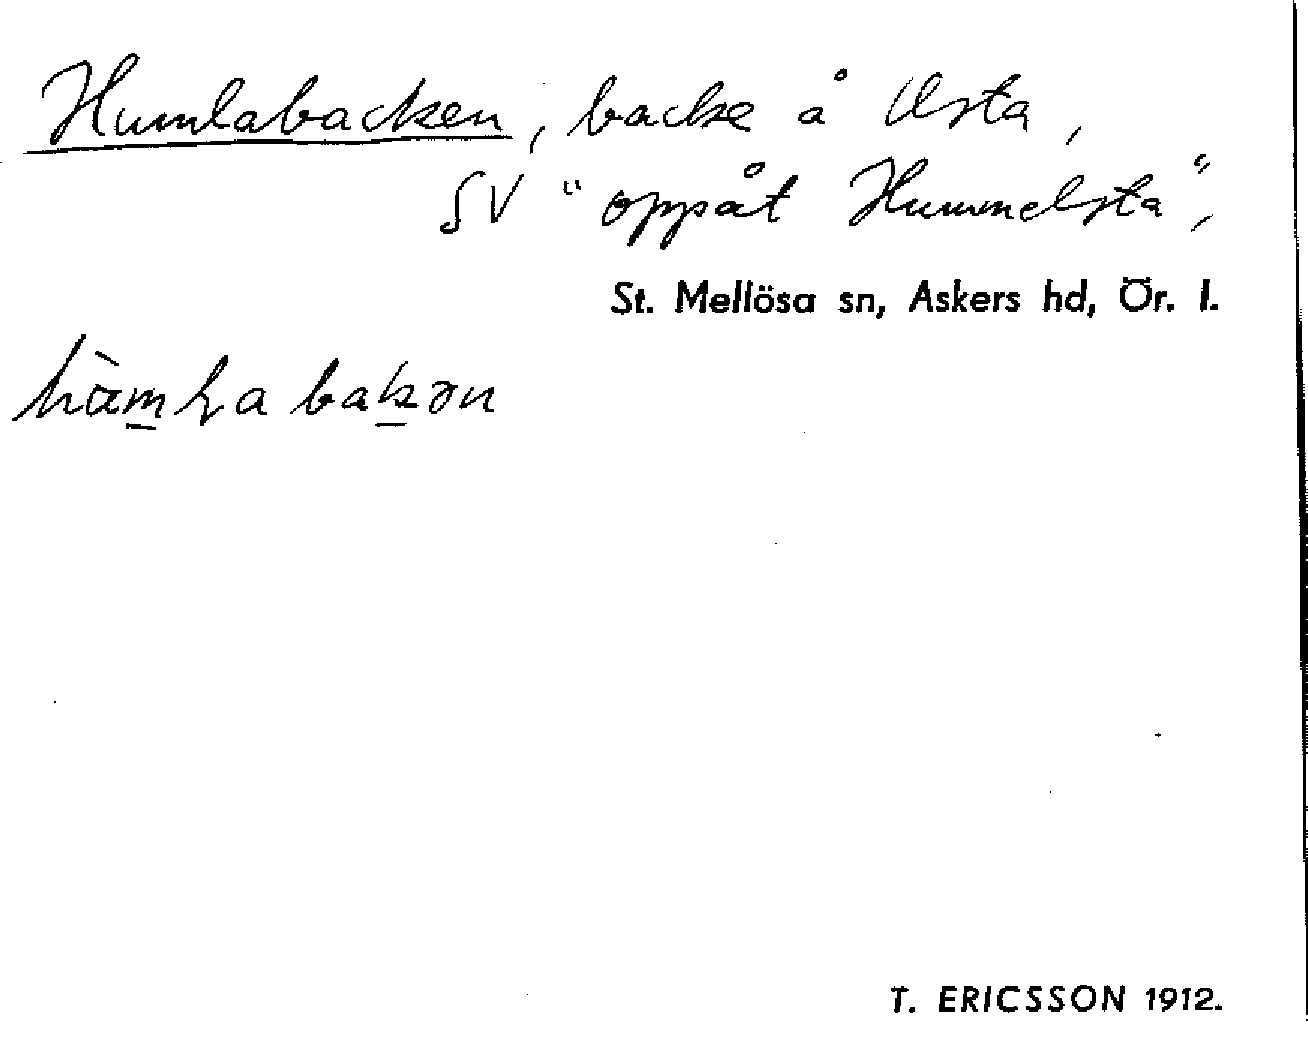 Humlabacken, backe å Usta,
SV "oppåt Hummelsta",
St. Mellösa sn, Askers hd, Ör. l.
bakən
T. ERICSSON 1912.